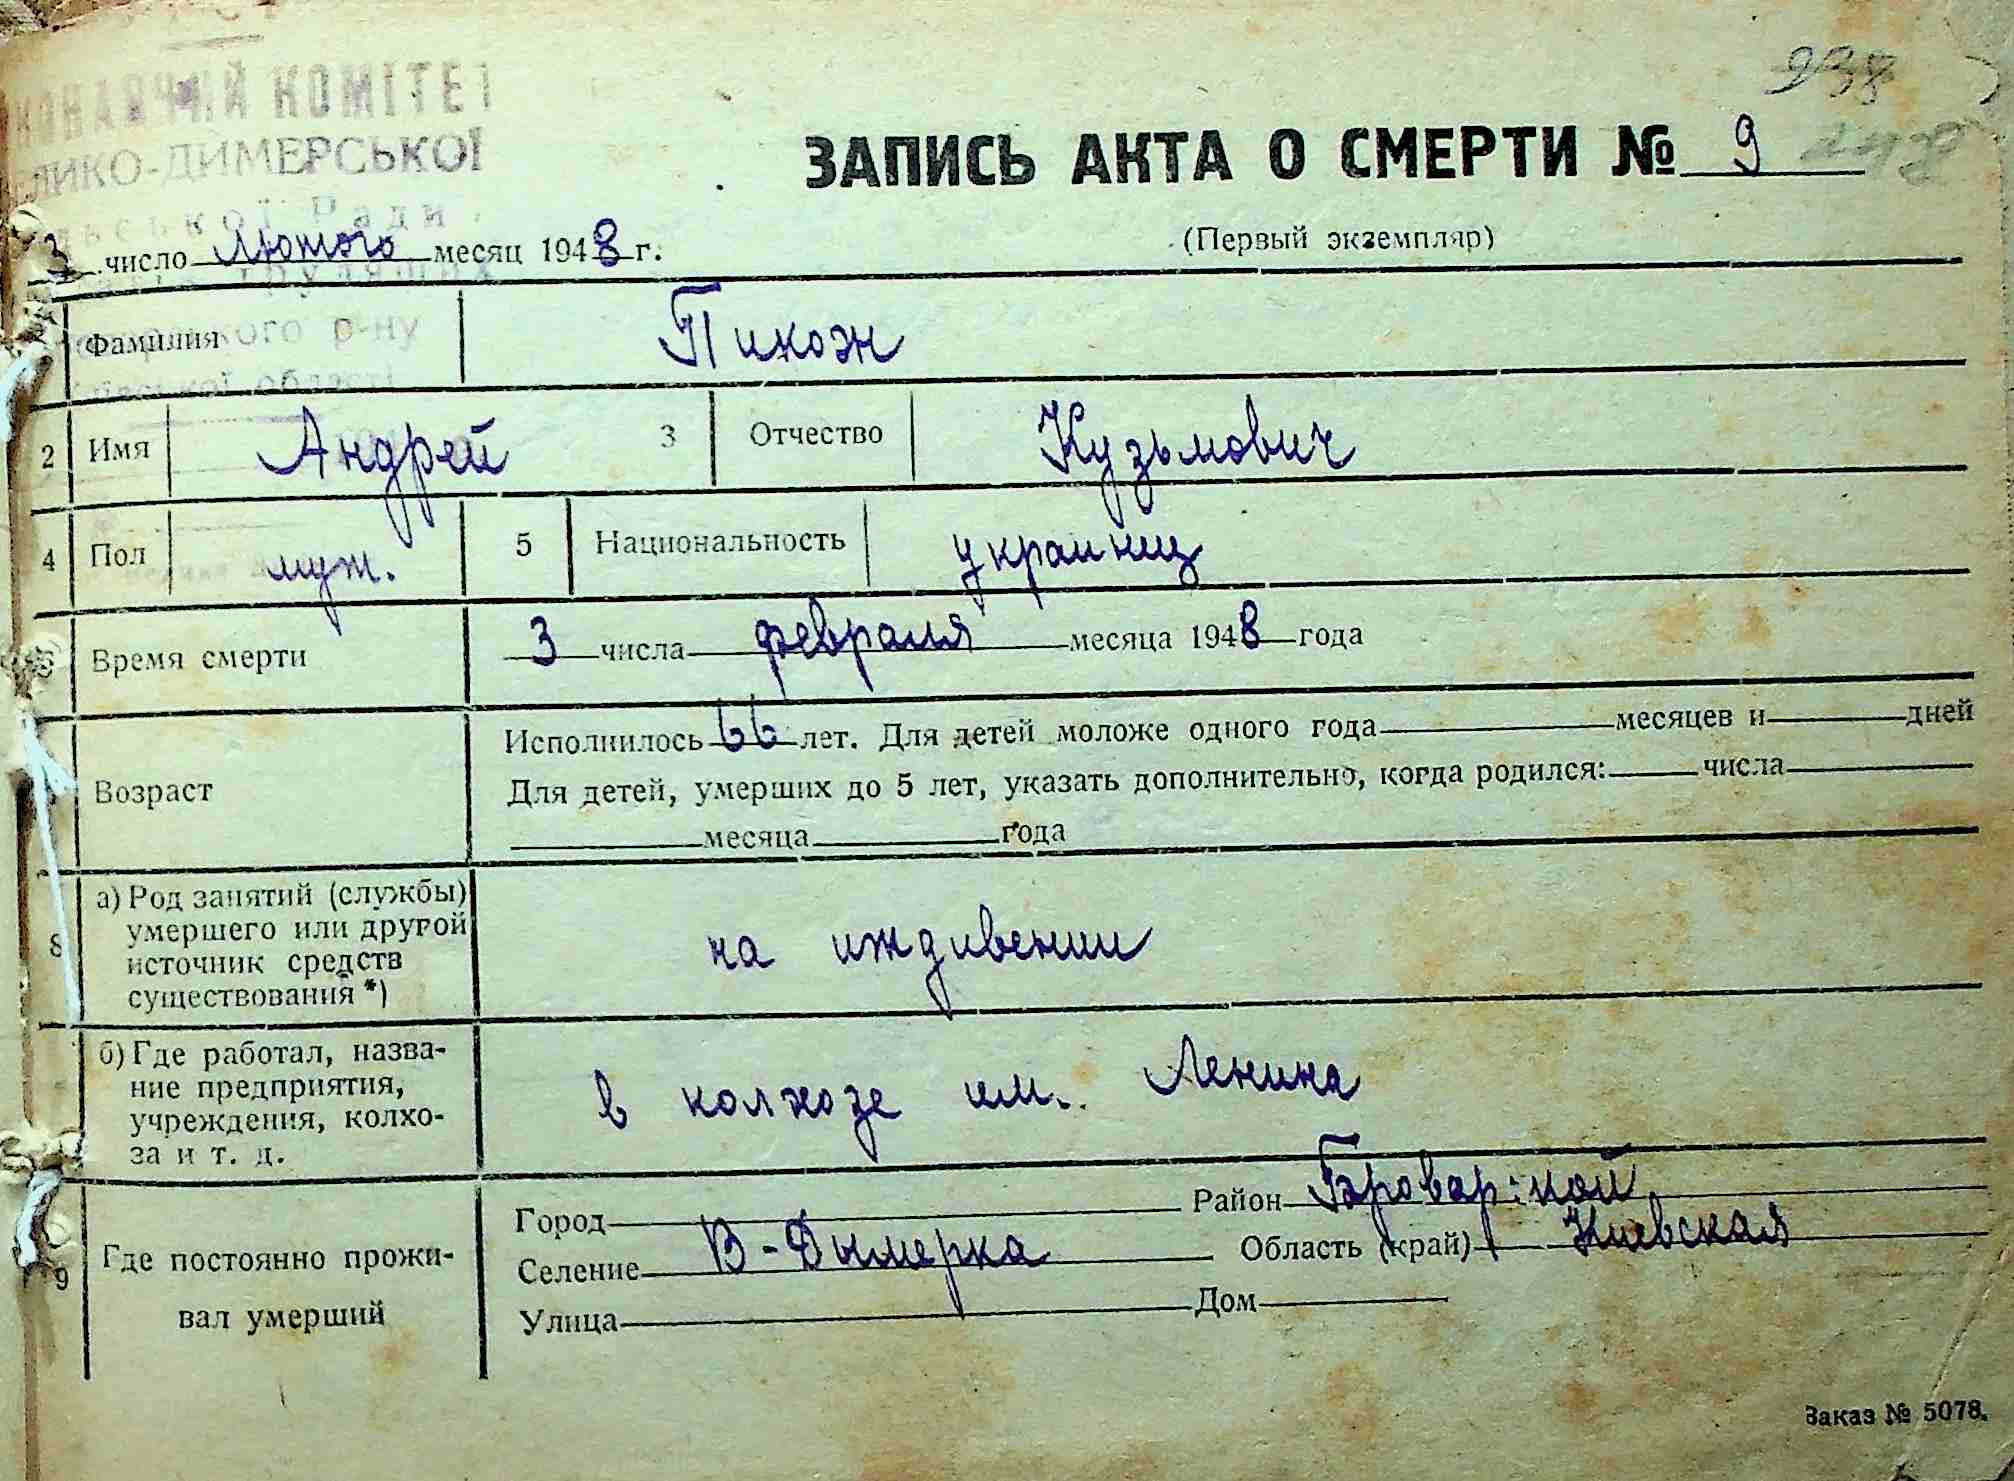 КОМІТЕТ
ЛИКО-ДИМЕРСЬКОЇ
Ради
трудящих
р-ну
області
238
ЗАПИСЬ АКТА О СМЕРТИ № 9
(Первый экземпляр)
3 число лютого месяц 1948 г.
Фамилия Пикож
2 Имя Андрей 3 Отчество Кузьмович
4 Пол муж. 5 Национальность украинец
Время смерти 3 числа февраля месяца 1948 года
Возраст Исполнилось 66 лет. Для детей моложе одного года месяцев и дней
Для детей, умерших до 5 лет, указать дополнительно, когда родился: числа
месяца года
8 а) Род занятий (службы)
умершего или другой
источник средств
существования *)
на иждивении
б) Где работал, назва-
ние предприятия,
учреждения, колхо-
за и т. д.
в колхозе им. Ленина
9 Где постоянно прожи-
вал умерший
Город Район Броварской
Селение В-Дымерка Область (край) Киевская
Улица Дом
Заказ № 5078.